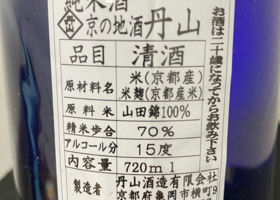 純米酒
京の地酒 丹山
品目 清酒
原材料名 米(京都産)
米麹(京都産米)
原料米 山田錦100%
精米歩合 70%
アルコール分 15度
内容量 720ml
製造者 丹山酒造有限会社
京都府亀岡市横町
お酒は二十歳になってからお飲み下さい